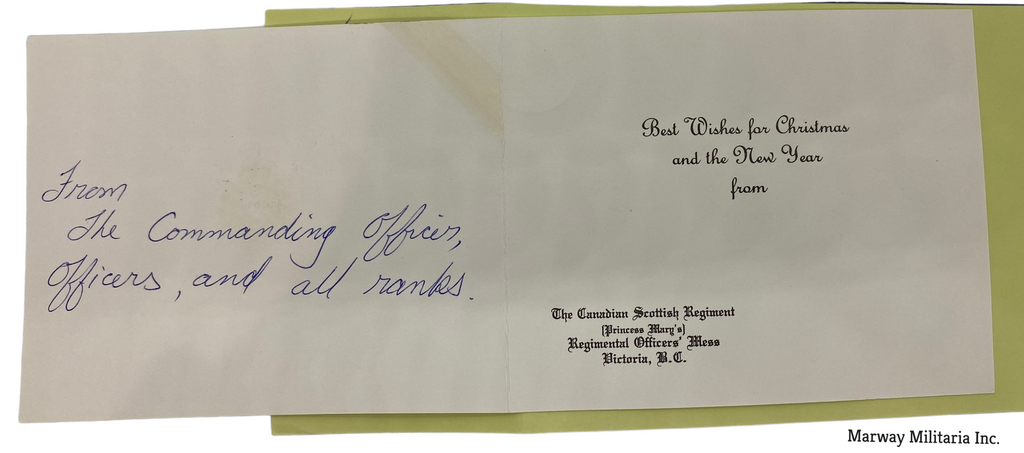 From
The Commanding Officer,
Officers, and all ranks.
Best Wishes for Christmas
and the New Year
from
The Canadian Scottish Regiment
(Princess Mary's)
Regimental Officers' Mess
Victoria, B.C.
Marway Militaria Inc.